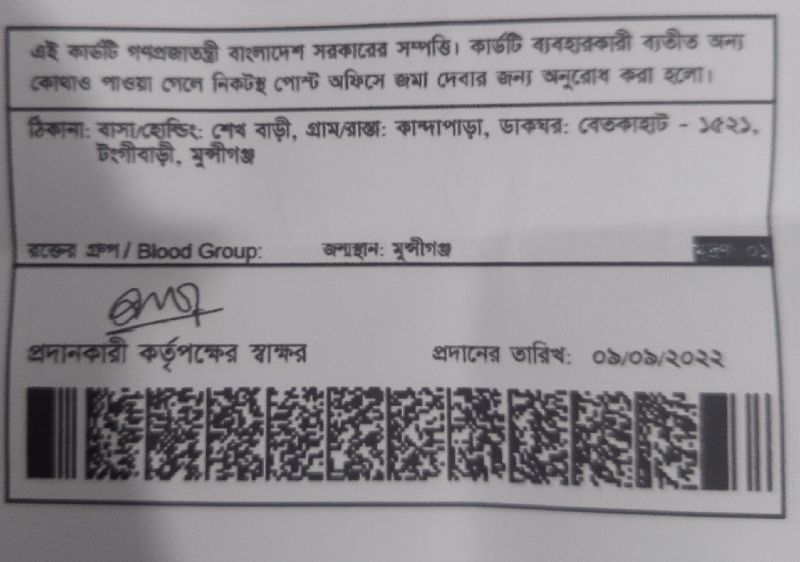 এই কার্ডটি গণপ্রজাতন্ত্রী বাংলাদেশ সরকারের সম্পত্তি। কার্ডটি ব্যবহারকারী ব্যতীত অন্য
কোথাও পাওয়া গেলে নিকটস্থ পোস্ট অফিসে জমা দেবার জন্য অনুরোধ করা হলো।
ঠিকানা: বাসা/হোল্ডিং: শেখ বাড়ী, গ্রাম/রাস্তা: কান্দাপাড়া, ডাকঘর: বেতকাহাট - ১৫২১,
টংগীবাড়ী, মুন্সীগঞ্জ
রক্তের গ্রুপ / Blood Group: জন্মস্থান: মুন্সীগঞ্জ
প্রদানকারী কর্তৃপক্ষের স্বাক্ষর প্রদানের তারিখ: ০৯/০৯/২০২২